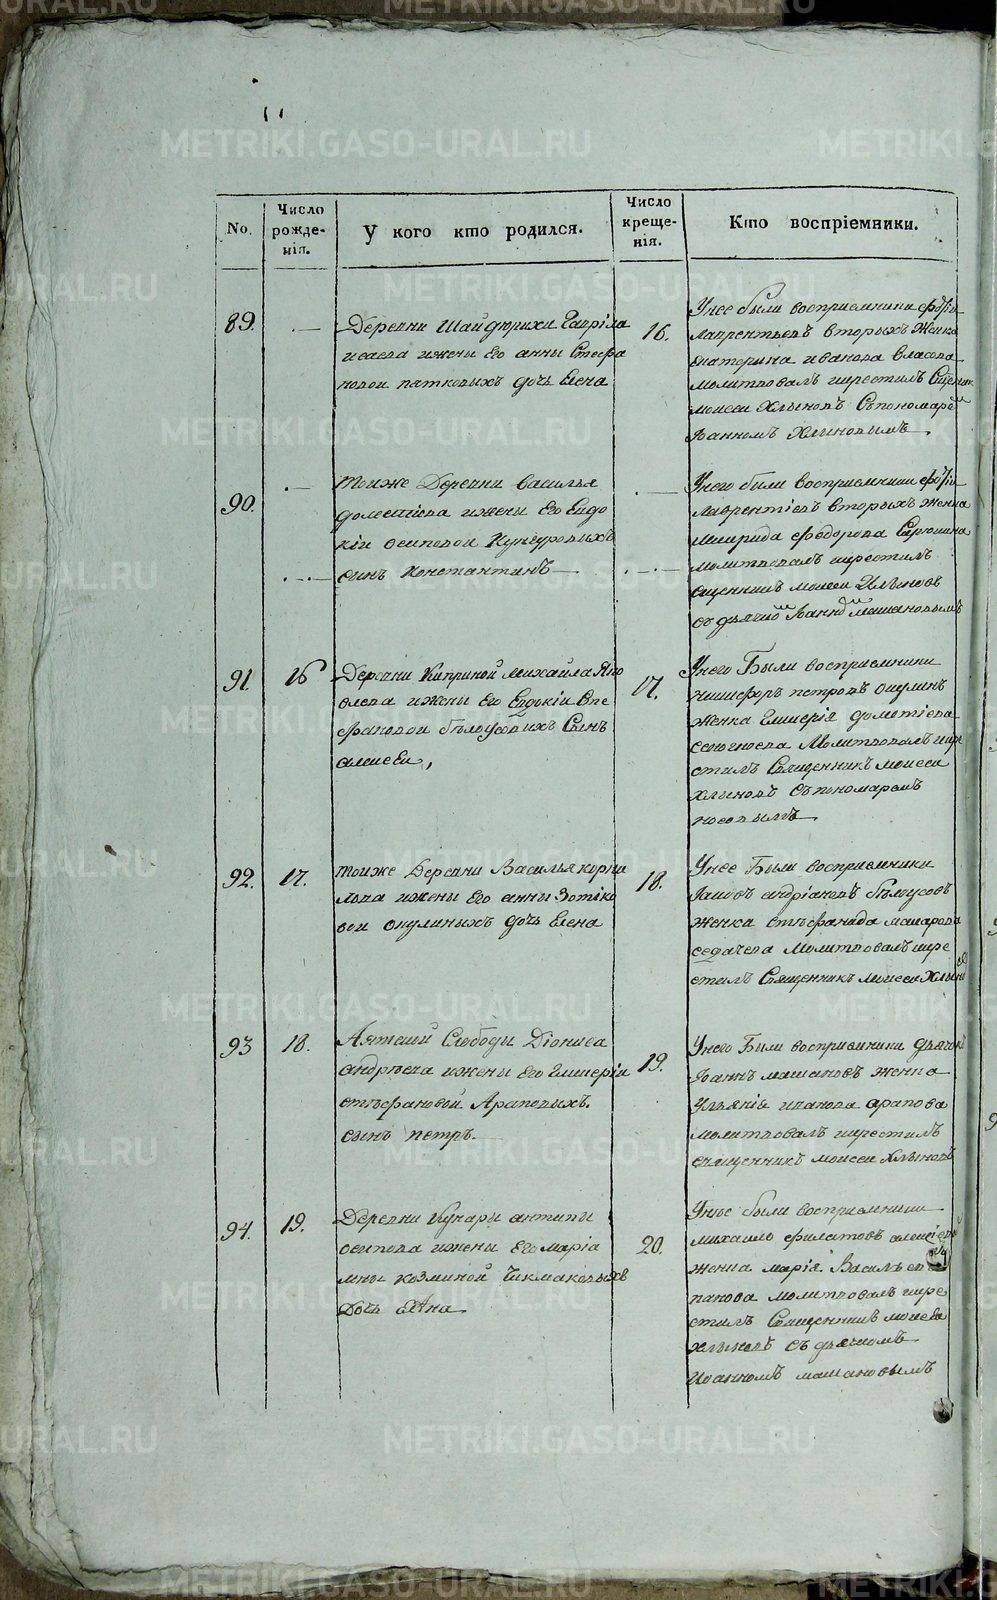 METRIKI.GASO-URAL.RU
No.
Число
рожде-
нія.
У кого кто родился.
Число
креще-
нія.
Кто воспріемники.
89.
Деревни Шайдурихи Гаврiла
исаева ижены Его анны Стефа
новои пятковыхъ дочь Елена
16.
Унее были восприемники
Лаврентьевъ вторыхъ женка
екатерина иванова власова
молитвовалъ икрестилъ
моисеи Хлыновъ Спономаремъ
Iоанномъ Хлыновымъ.
90.
тоиже Деревни василья
ижены Его Евдо
кiи осиповои
сынъ Константинъ
Унего были восприемники
Лаврентiевъ вторыхъ женка
федорова
молитвовалъ икрестилъ
моисеи Хлыновъ
съ дьячкомъ Iоанномъ
91.
16
Деревни Киприной михаила Яко
влева ижены Его Евдокiи Сте
фановои бѣлоусовыхъ Сынъ
алексеи,
17.
Унего Были восприемники
никифоръ петровъ окулинъ
женка Гликерiя
Молитвовалъ икре
стилъ Священникъ моисеи
хлыновъ Съпономаремъ
носовымъ
92.
17.
тоиже Деревни Василья корни
лова ижены его анны Зотико
вои окулиныхъ дочь Елена
18.
Унее Были восприемники
Iаковъ андрiановъ бѣлоусовъ
женка стефанида макарова
седачева молитвовалъ икре
стилъ Священникъ моисеи Хлыновъ
93
18.
Аятской Слободы Дiонисея
андрѣева ижены Его Гликерiи
стефановой Араповыхъ.
сынъ петръ.
19.
Унего Были восприемники дьячокъ
Iоаннъ женка
Ульянiя иванова арапова
молитвовалъ икрестилъ
священникъ моисеи хлыновъ
94.
19.
Деревни Кунары антипы
осипова ижены Его марiа
мны козминой Чикмаковыхъ
Дочь Анна
20.
Унее были восприемники
михаило филатовъ
женка марiя
молитвовалъ икре
стилъ Священникъ моисеи
хлыновъ съ дьячкомъ
Иоанномъ